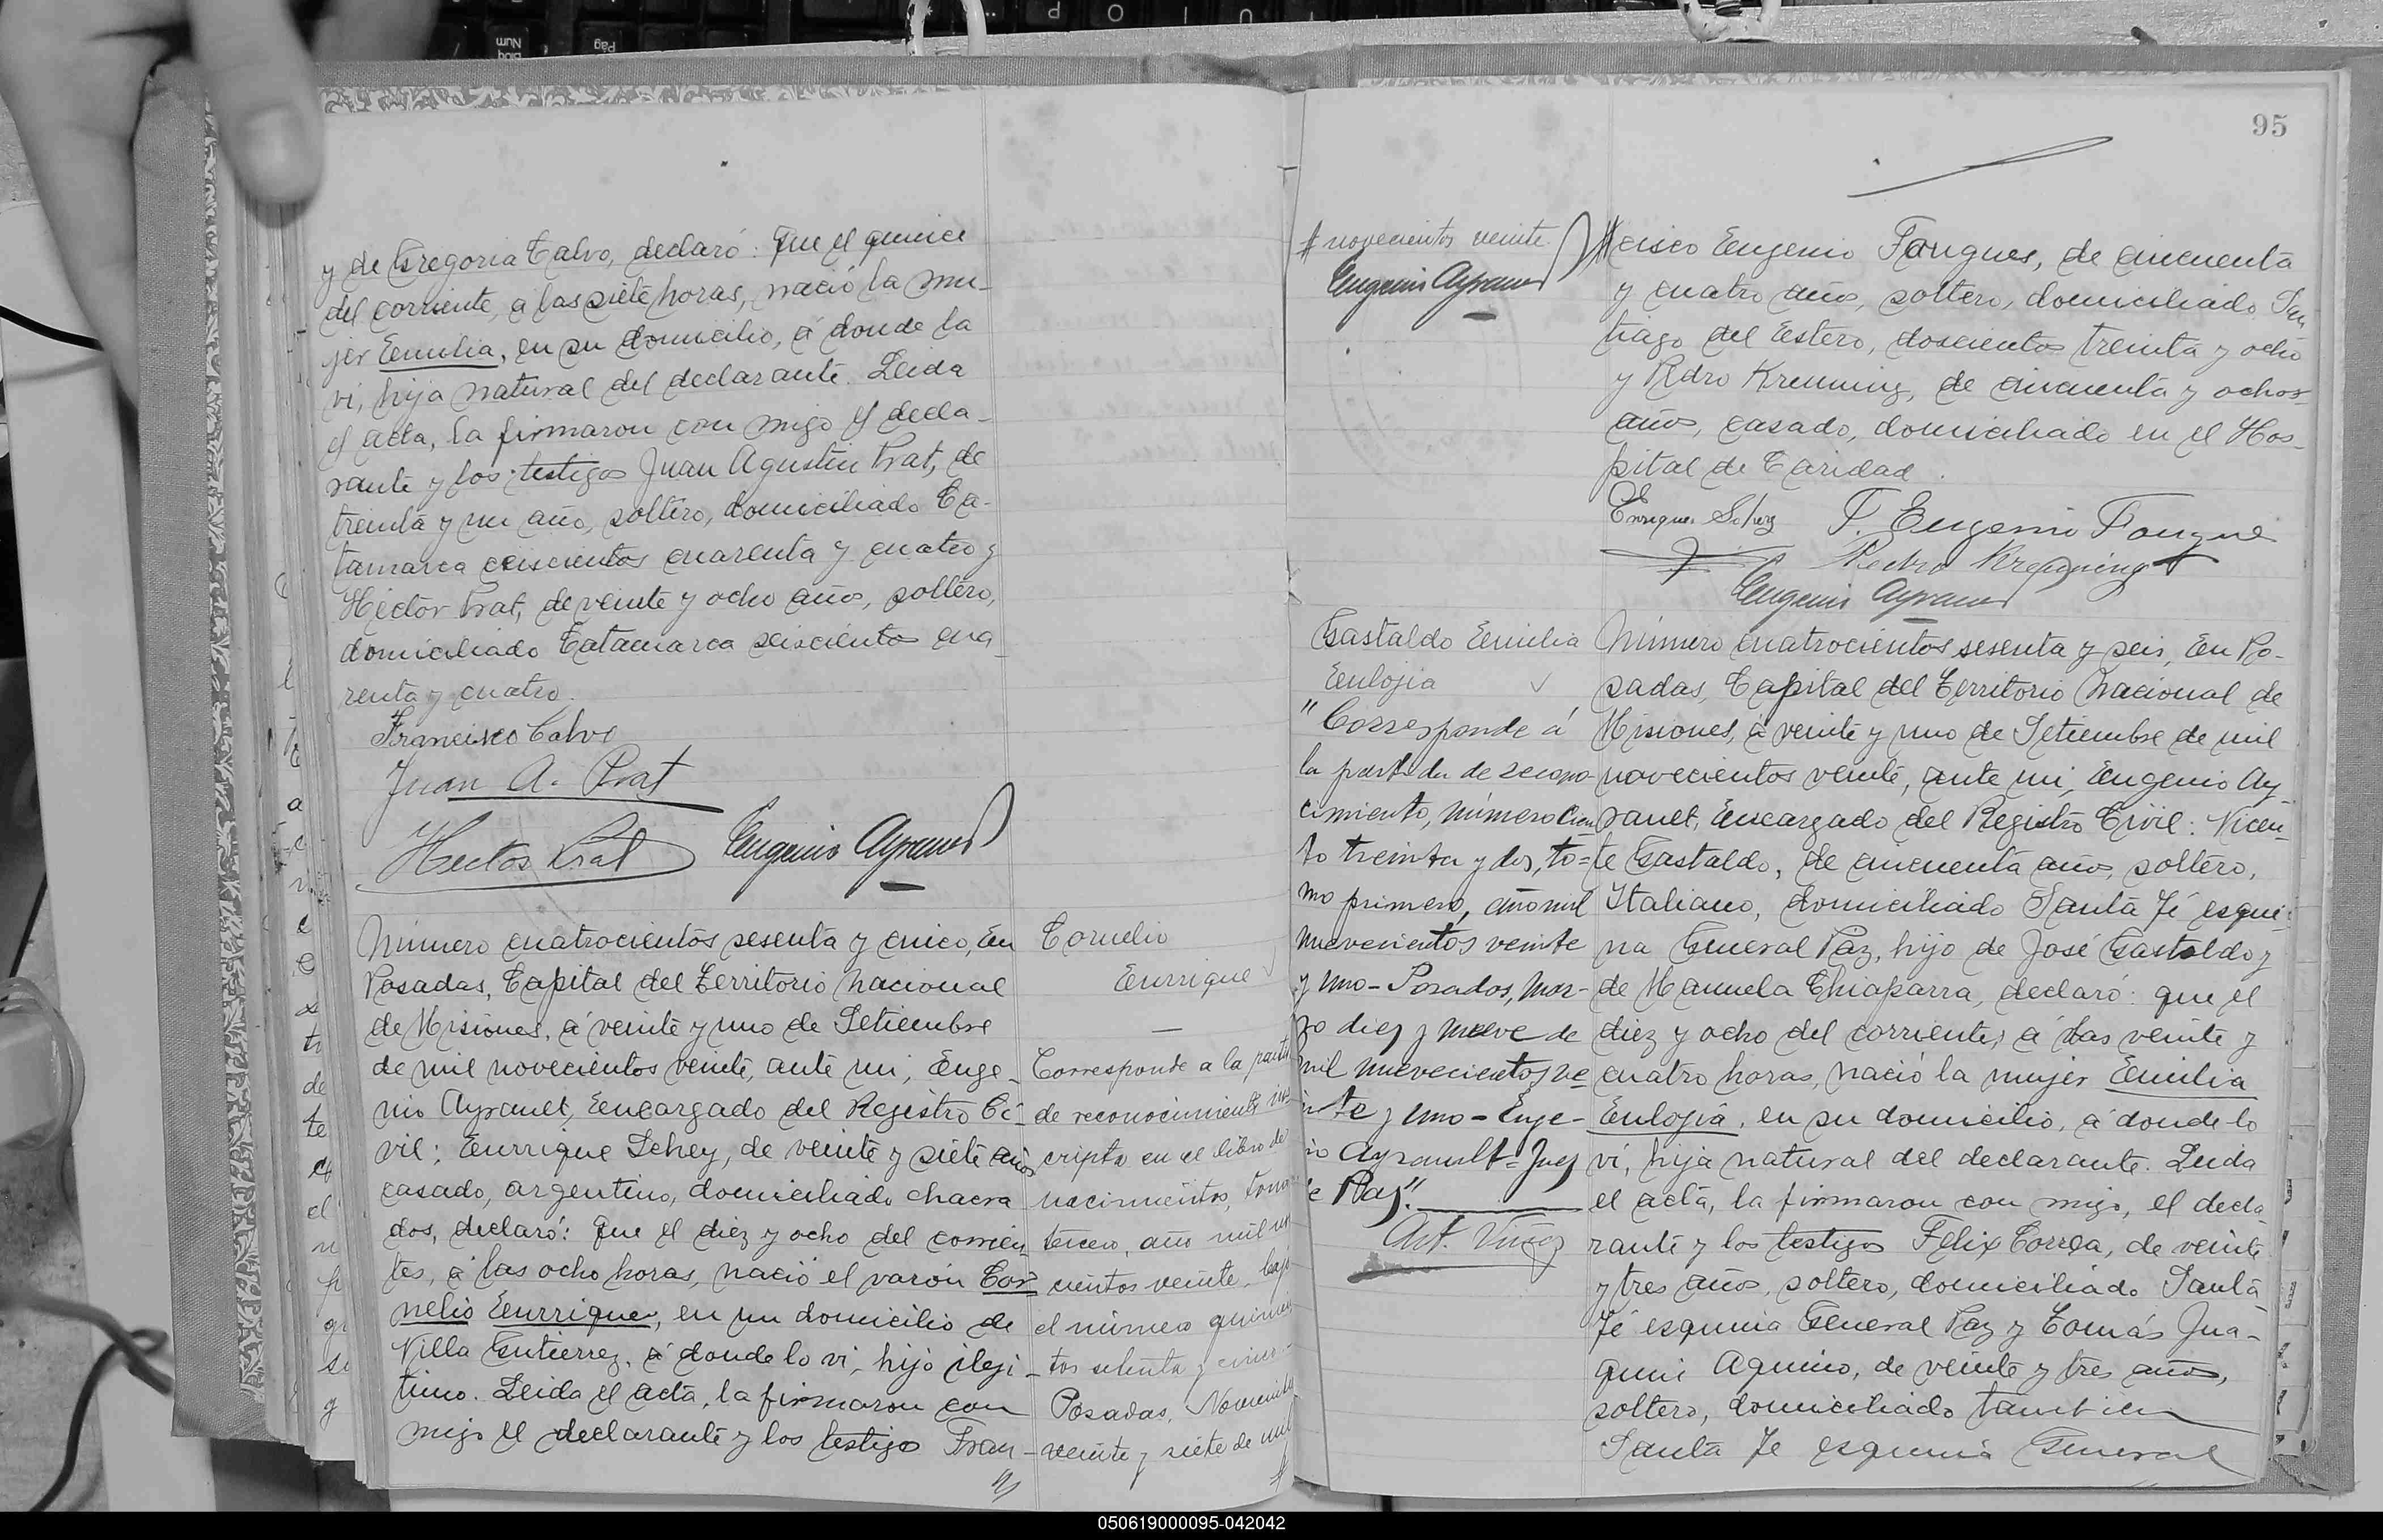 y de Gregoria Calvo, declaró: Que el quince
del corriente, a las siete horas, nació la mu-
jer Emilia, en su domicilio, a donde la
vi, hija natural del declarante. Leida
el acta, la firmaron con migo el decla-
rante y los testigos Juan Agustin Prat, de
treinta y un año, soltero, domiciliado Ca-
tamarca seiscientos cuarenta y cuatro y
Héctor Prat, de veinte y ocho años, soltero,
domiciliado Catamarca seiscientos cua-
renta y cuatro.
Francisco Calvo
Juan A. Prat
Hector Prat Eugenio Ayrault
Número cuatrocientos sesenta y cinco, En
Posadas, Capital del Territorio Nacional
de Misiones, a veinte y uno de Setiembre
de mil novecientos veinte, ante mi, Euge-
nio Ayrault, Encargado del Registro Ci-
vil: Enrrique Schey, de veinte y siete años
casado, argentino, domiciliado chacra
dos, declaró: Que el diez y ocho del corrien-
tes, a las ocho horas, nació el varón Cor-
nelio Enrrique, en un domicilio de
Villa Gutierrez, a donde lo vi, hijo ileji-
timo. Leida el acta, la firmaron con
migo el declarante y los testigos Fran-
Cornelio
Enrrique
Corresponde a la
de reconocimiento
cripta en el libro de
nacimientos, tomo
tercero, año mil
cientos veinte, bajo
el número
tos setenta y cinco-
Posadas, Noviembre
veinte y siete de mil
95
# novecientos veinte.
Eugenio Ayrault
cisco Eugenio Fougues, de cincuenta
y cuatro años, soltero, domiciliado San
tiago del Estero, doscientos treinta y ocho
y Pedro Kremming, de cincuenta y ochos
años, casado, domiciliado en el Hos-
pital de Caridad.
Enrique Schey F. Eugenio Fougue
Pedro
Eugenio Ayrault
Gastaldo Emilia
Eulojia
"Corresponde á
la partida de recono-
cimiento, número cien
to treinta y dos, to=
mo primero, año mil
nuevecientos veinte
y uno- Posadas, Mar-
zo diez y nueve de
mil nuevecientos ve
inte y uno - Euge-
nio Ayrault = Juez
de Paz".
Número cuatrocientos sesenta y seis, En Po-
sadas, Capital del Territorio Nacional de
Misiones, a veinte y uno de Setiembre de mil
novecientos veinte, ante mi, Eugenio Ay-
rault, Encargado del Registro Civil: Vicen-
te Gastaldo, de cincuenta años, soltero,
Italiano, domiciliado Santa Fé esqui-
na General Paz, hijo de José Gastaldo y
de Manuela Chiaparra, declaró: que el
diez y ocho del corriente, a las veinte y
cuatro horas, nació la mujer Emilia
Eulojia, en su domicilio, a donde lo
vi, hija natural del declarante. Leida
el acta, la firmaron con migo, el decla
rante y los testigos Felix Correa, de veinte
y tres años, soltero, domiciliado Santa
Fé esquina General Paz y Tomás Jua-
quin Aquino, de veinte y tres años,
soltero, domiciliado tambien
Santa Fe esquina General
050619000095-042042